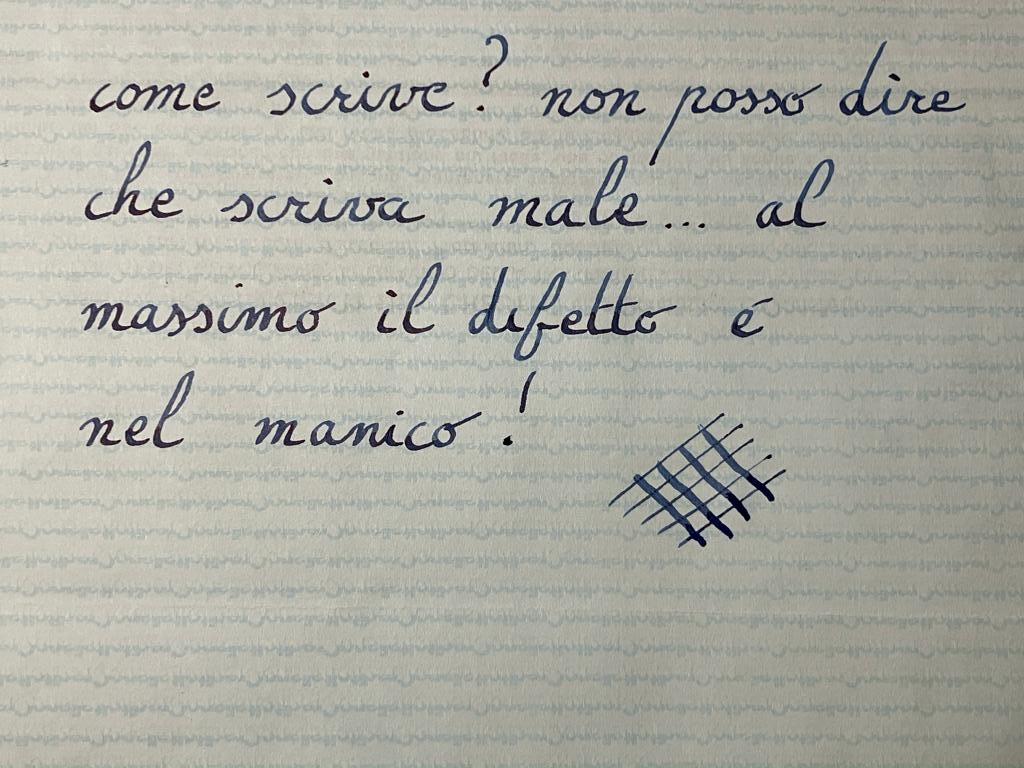 come scrive? non posso dire
che scriva male... al
massimo il difetto é
nel manico!